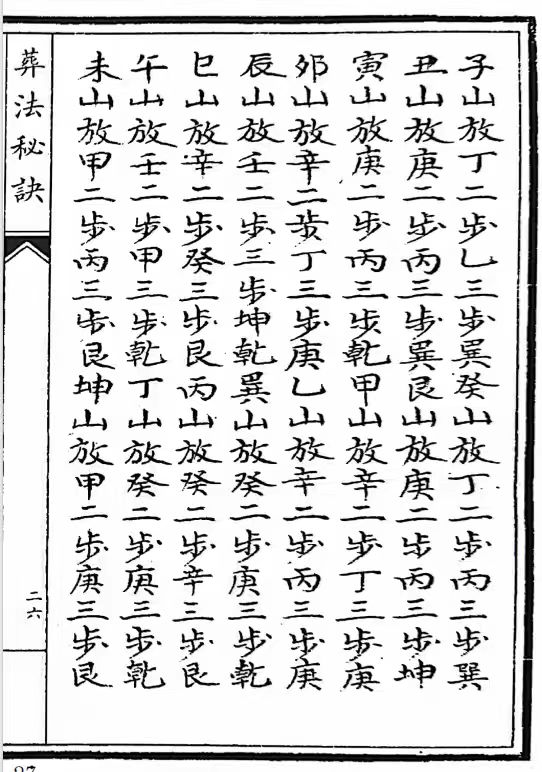 子山放丁二步乙三步巽癸山放丁二步丙三步巽
丑山放庚二步丙三步巽艮山放庚二步丙三步坤
寅山放庚二步丙三步乾甲山放辛二步丁三步庚
卯山放辛二步丁三步庚乙山放辛二步丙三步庚
辰山放壬二步三步坤乾巽山放癸二步庚三步乾
巳山放辛二步癸三步艮丙山放癸二步辛三步艮
午山放壬二步甲三步乾丁山放癸二步庚三步乾
未山放甲二步丙三步艮坤山放甲二步庚三步艮
葬法秘訣
二六